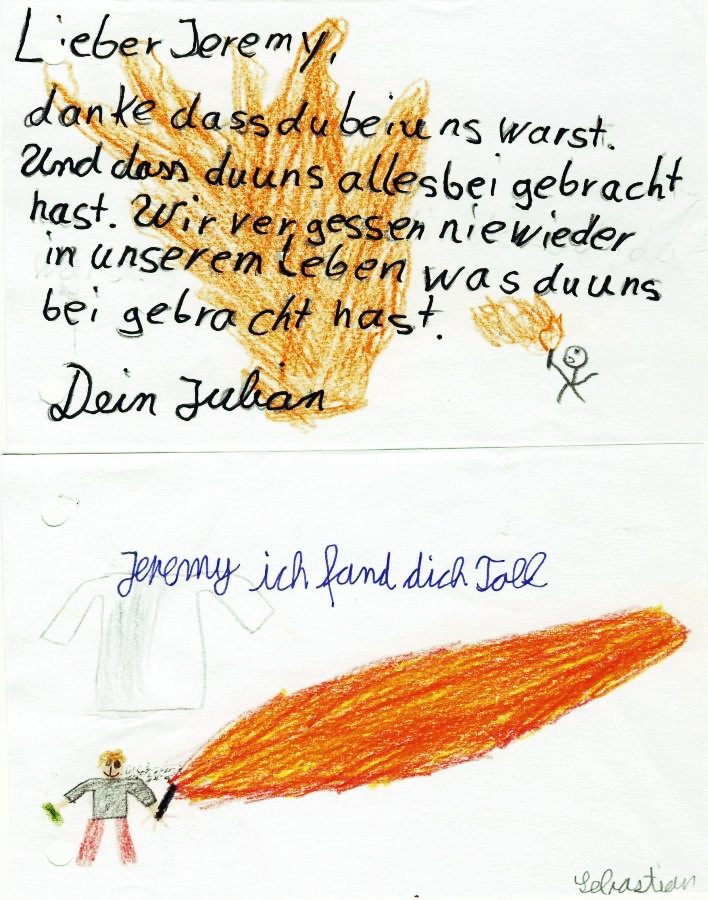 Lieber Jeremy,
danke dass du bei uns warst.
Und dass du uns alles bei gebracht
hast. Wir vergessen nie wieder
in unserem Leben was du uns
bei gebracht hast.
Dein Julian
Jeremy ich fand dich Toll
Sebastian